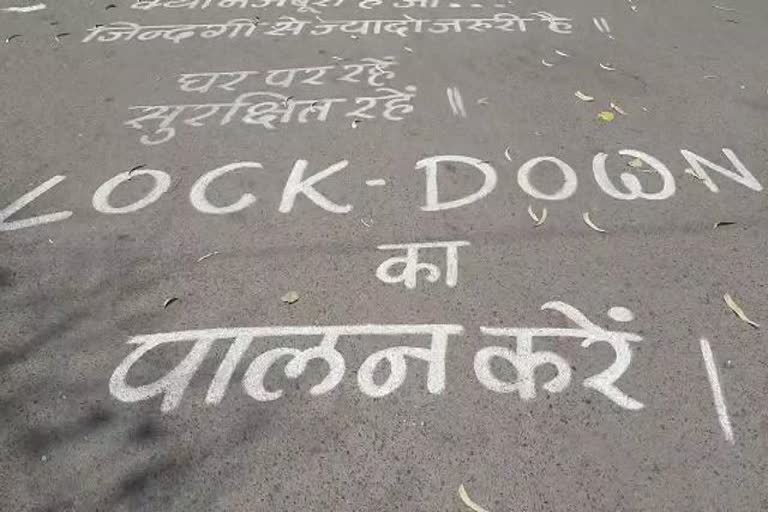 जिन्दगी से ज्यादा जरुरी है ॥
घर पर रहें
सुरक्षित रहें ॥
LOCK-DOWN
का
पालन करें ।